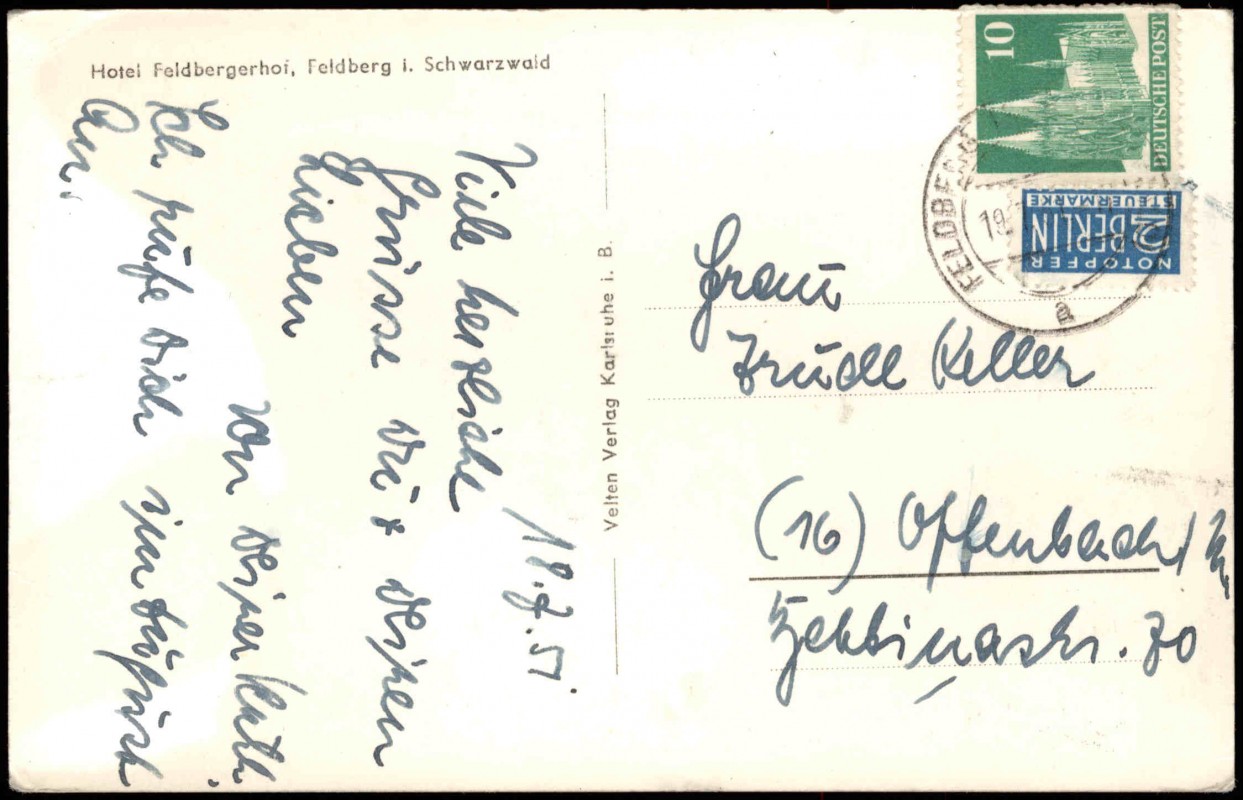 Hotel Feldbergerhof, Feldberg i. Schwarzwald
18.7.51
Viele herzliche
Grüsse Dir & deinen
Lieben
Von deiner Käth.
Ich rufe Dich
An.
Velten Verlag Karlsruhe i. B.
10
DEUTSCHE POST
NOTOPFER
2 BERLIN
STEUERMARKE
FELDBERG
19
a
Frau
Trudl Keller
(16) Offenbach / M
70